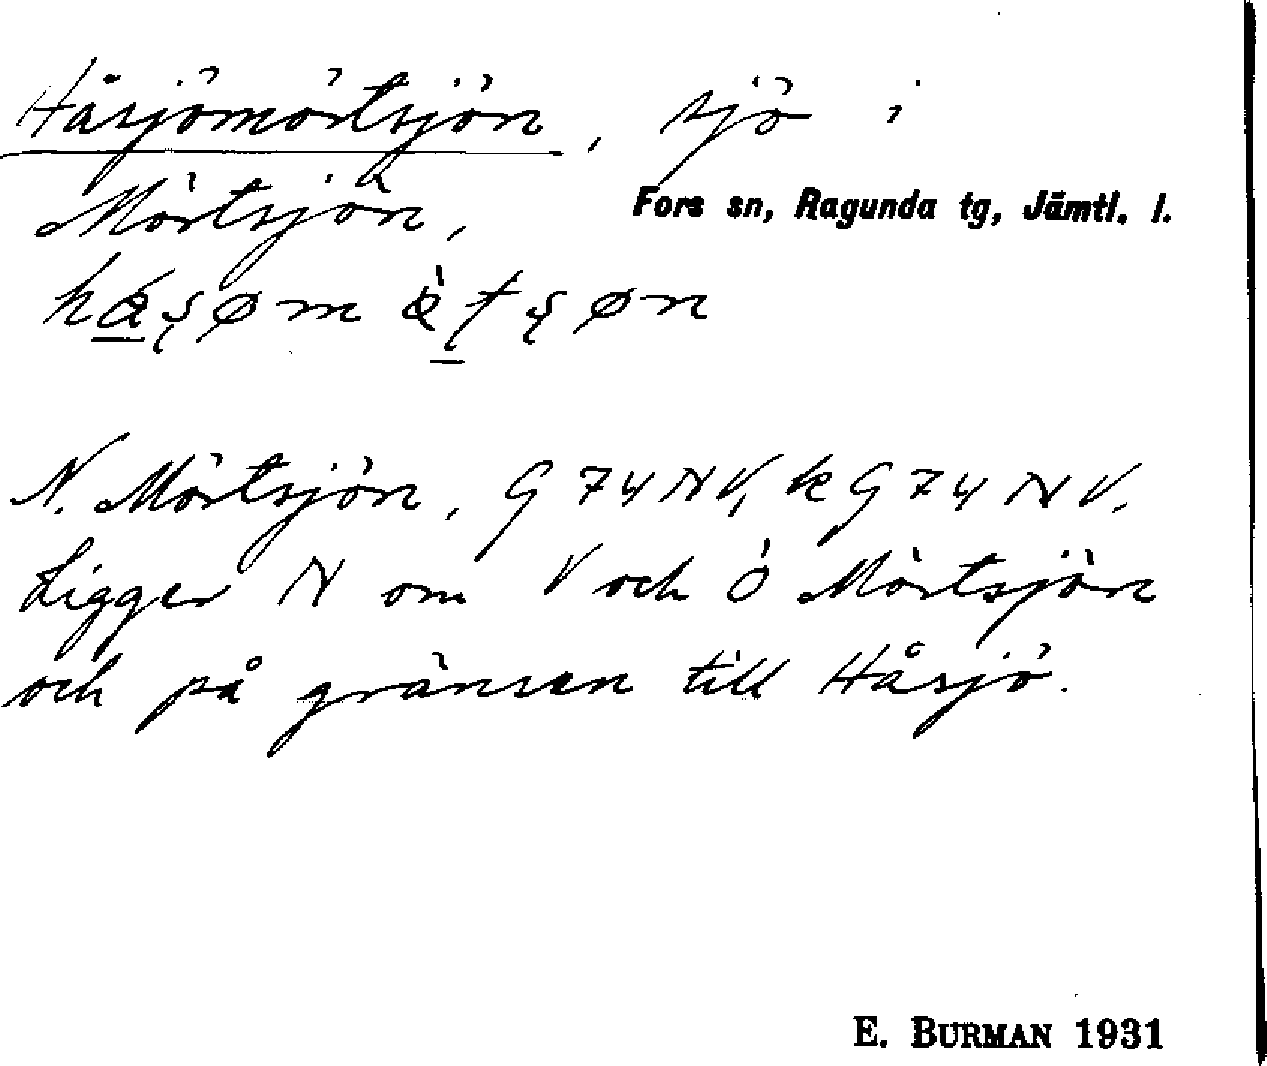 Håsjömörtsjön, sjö i
Mörtsjön,
Fors sn, Ragunda tg, Jämtl. l.
N. Mörtsjön, G 74 NV, k G 74 NV.
Ligger N om V och Ö Mörtsjön
och på gränsen till Håsjö.
E. BURMAN 1931